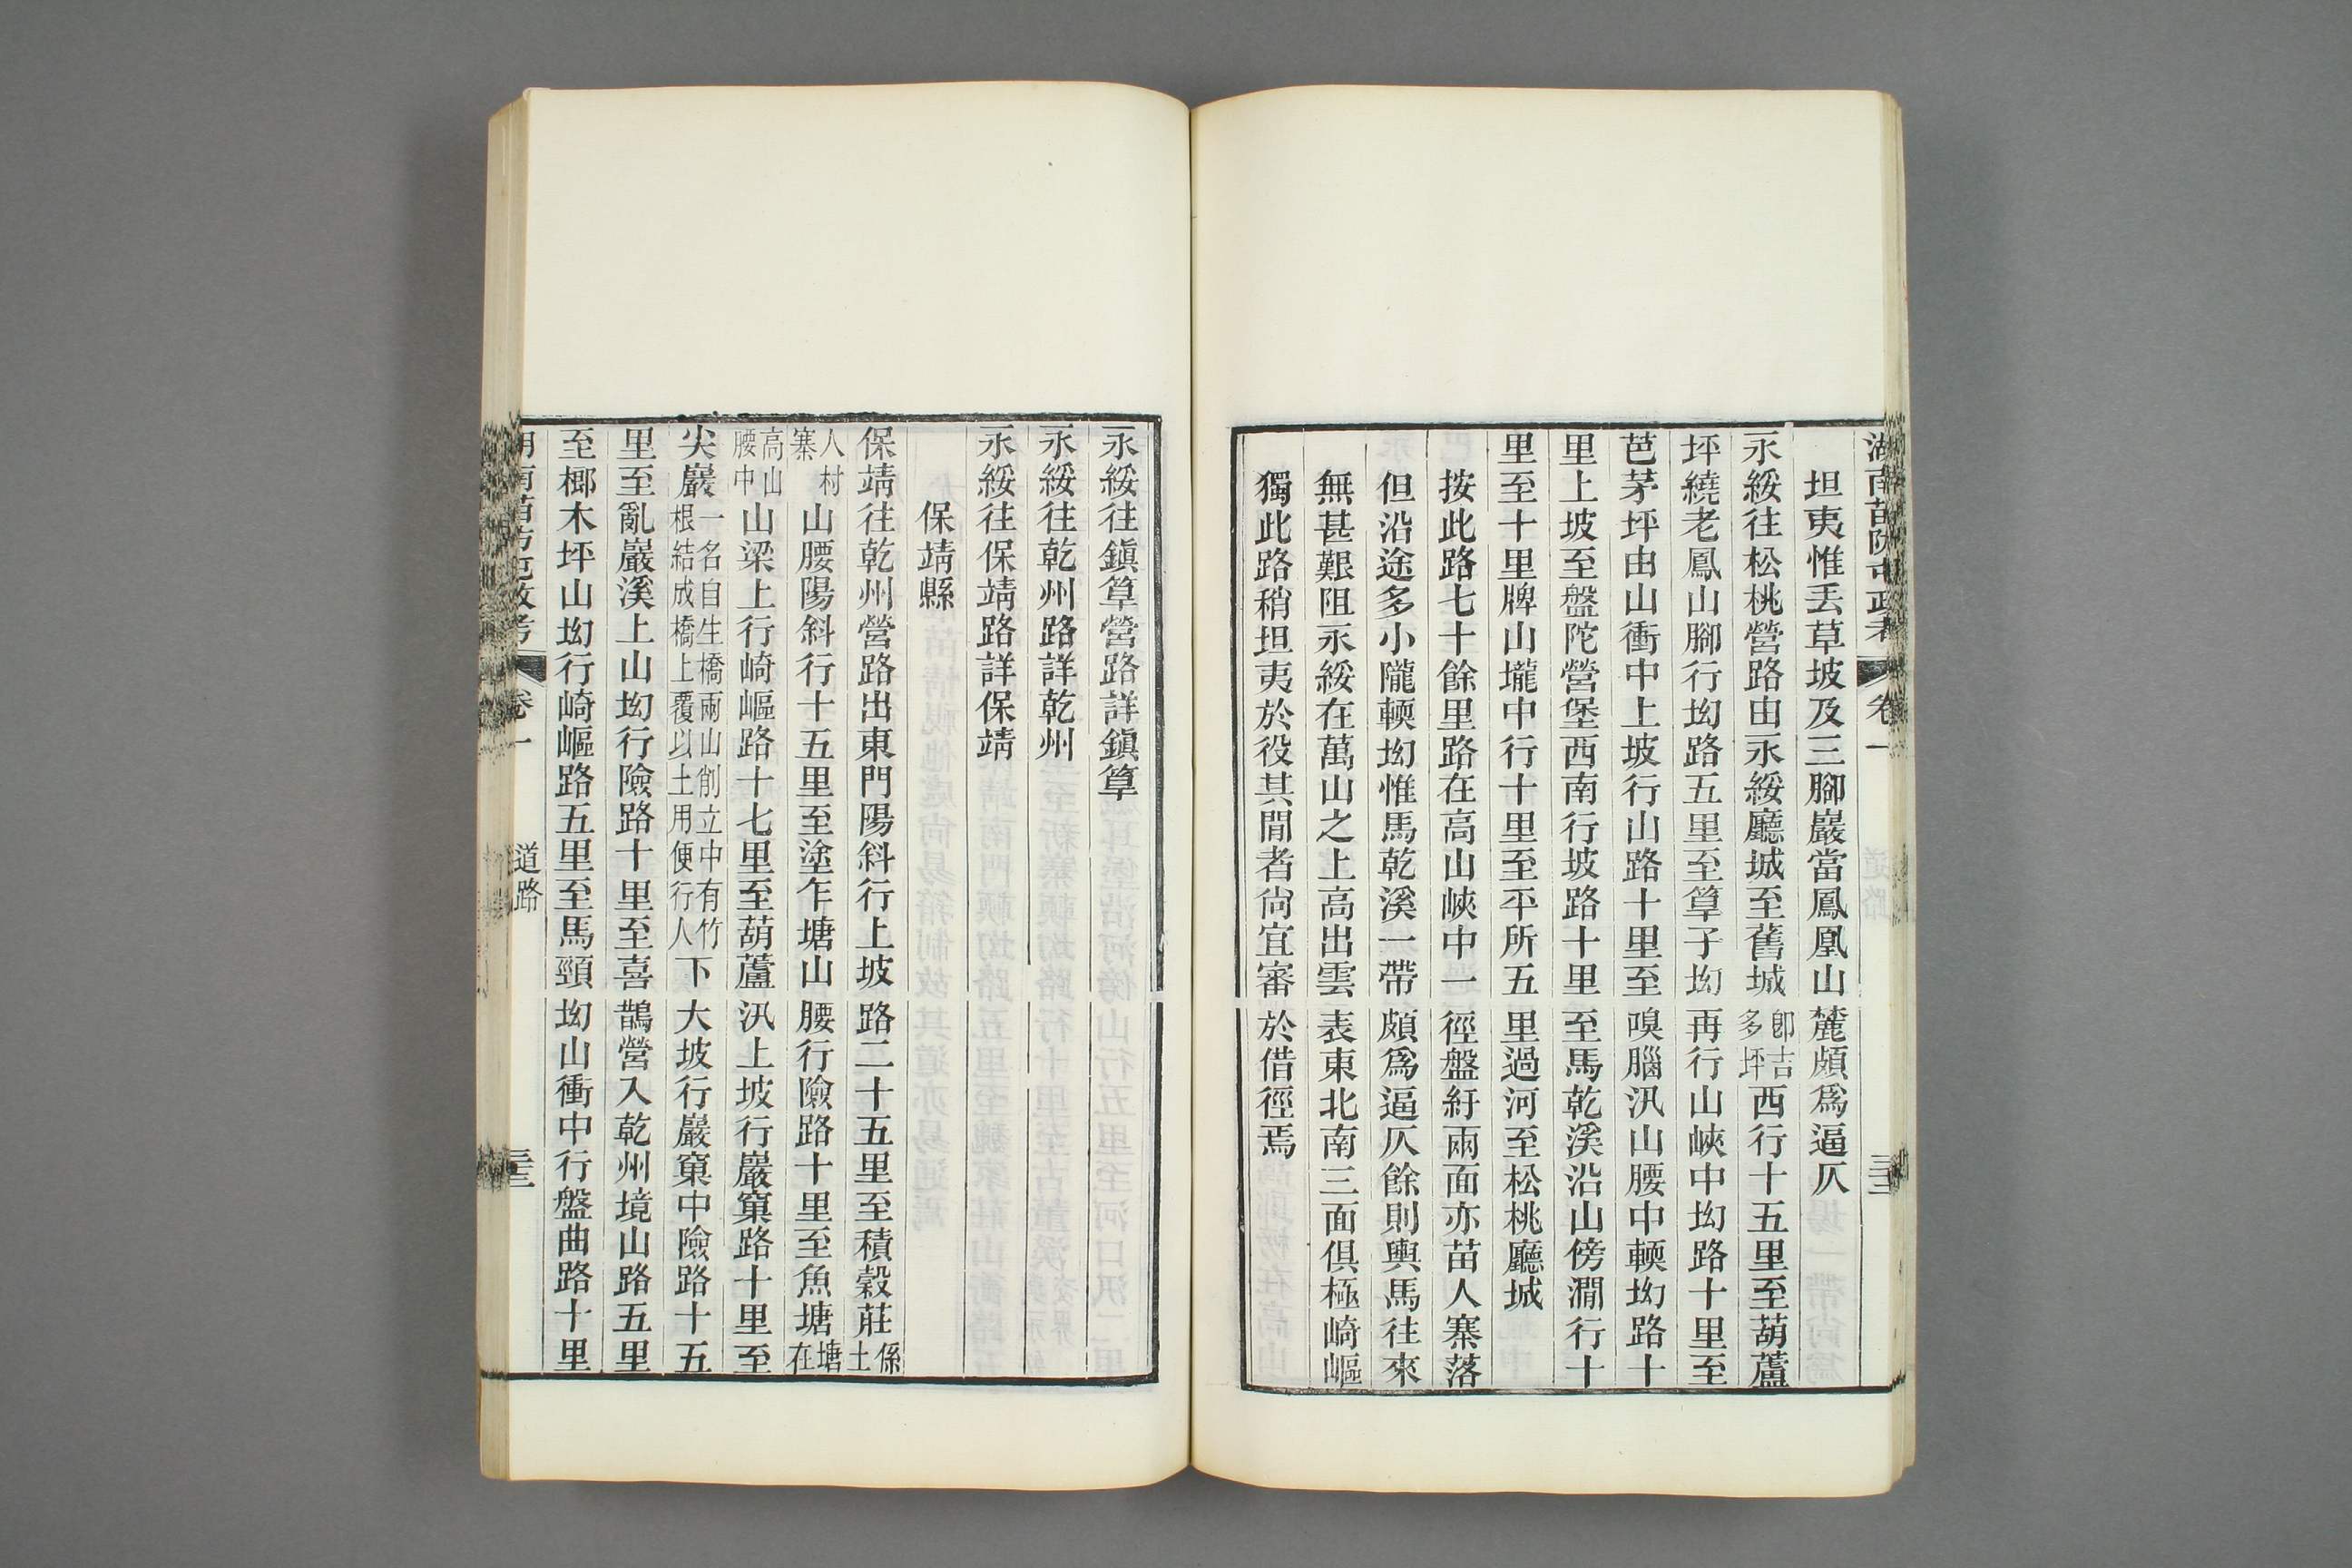 湖南苗防屯政考 卷一
坦夷惟丟草坡及三腳巖當鳳凰山麓頗爲逼仄
永綏往松桃營路由永綏廳城至舊城卽吉多坪西行十五里至葫蘆
坪繞老鳳山腳行㘭路五里至筸子㘭再行山峽中㘭路十里至
芭茅坪由山衝中上坡行山路十里至嗅腦汛山腰中輭㘭路十
里上坡至盤陀營堡西南行坡路十里至馬乾溪沿山傍澗行十
里至十里牌山壠中行十里至平所五里過河至松桃廳城
按此路七十餘里路在高山峽中一徑盤紆兩面亦苗人寨落
但沿途多小隴輭㘭惟馬乾溪一帶頗爲逼仄餘則輿馬往來
無甚艱阻永綏在萬山之上高出雲表東北南三面俱極崎嶇
獨此路稍坦夷於役其閒者尙宜審於借徑焉
永綏往鎭筸營路詳鎭筸
永綏往乾州路詳乾州
永綏往保靖路詳保靖
保靖縣
保靖往乾州營路出東門陽斜行上坡路二十五里至積穀莊係土
人村寨山腰陽斜行十五里至塗乍塘山腰行險路十里至魚塘塘在
高山腰中山梁上行崎嶇路十七里至葫蘆汛上坡行巖窠路十里至
尖巖一名自生橋兩山削立中有竹根結成橋上覆以土用便行人下大坡行巖窠中險路十五
里至亂巖溪上山㘭行險路十里至喜鵲營入乾州境山路五里
至梛木坪山㘭行崎嶇路五里至馬頸㘭山衝中行盤曲路十里
南苗防屯政考 卷一 道路 三三